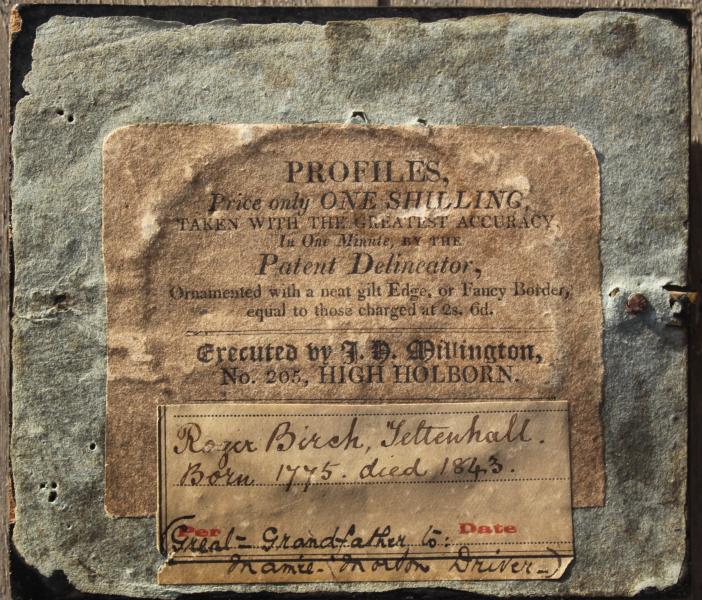 PROFILES,
Price only ONE SHILLING,
TAKEN WITH THE GREATEST ACCURACY,
In One Minute, BY THE
Patent Delineator,
Ornamented with a neat gilt Edge, or Fancy Border,
equal to those charged at 2s. 6d.
Executed by J. H. Millington,
No. 205, HIGH HOLBORN.
Roger Birch, Tettenhall.
Born 1775. died 1843.
Per Date
(Great-Grandfather to:
Mamie-(Morton Driver-)